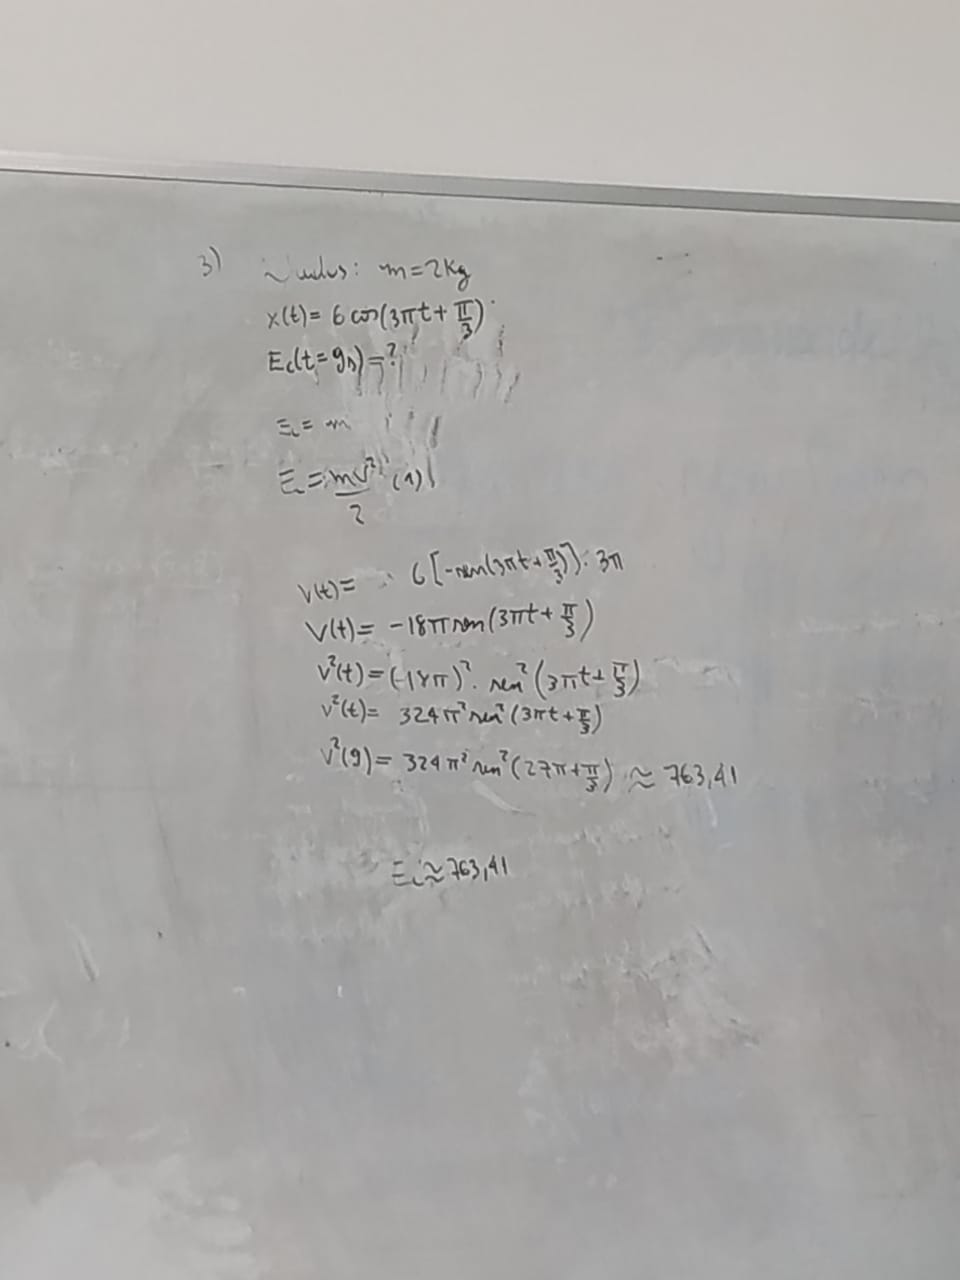 3) m=2Kg
x(t)= 6 cos(3πt+π/3)
Ec(t=9s)=?
Ec= m
Ec=mv²/2 (1)
V(t)= 6[-sen(3πt+π/3)]. 3π
V(t)= -18π sen(3πt+π/3)
v²(t)=(-18π)². sen²(3πt+π/3)
v²(t)= 324π² sen²(3πt+π/3)
v²(9)= 324π² sen²(27π+π/3) ≈ 763,41
Ec≈763,41